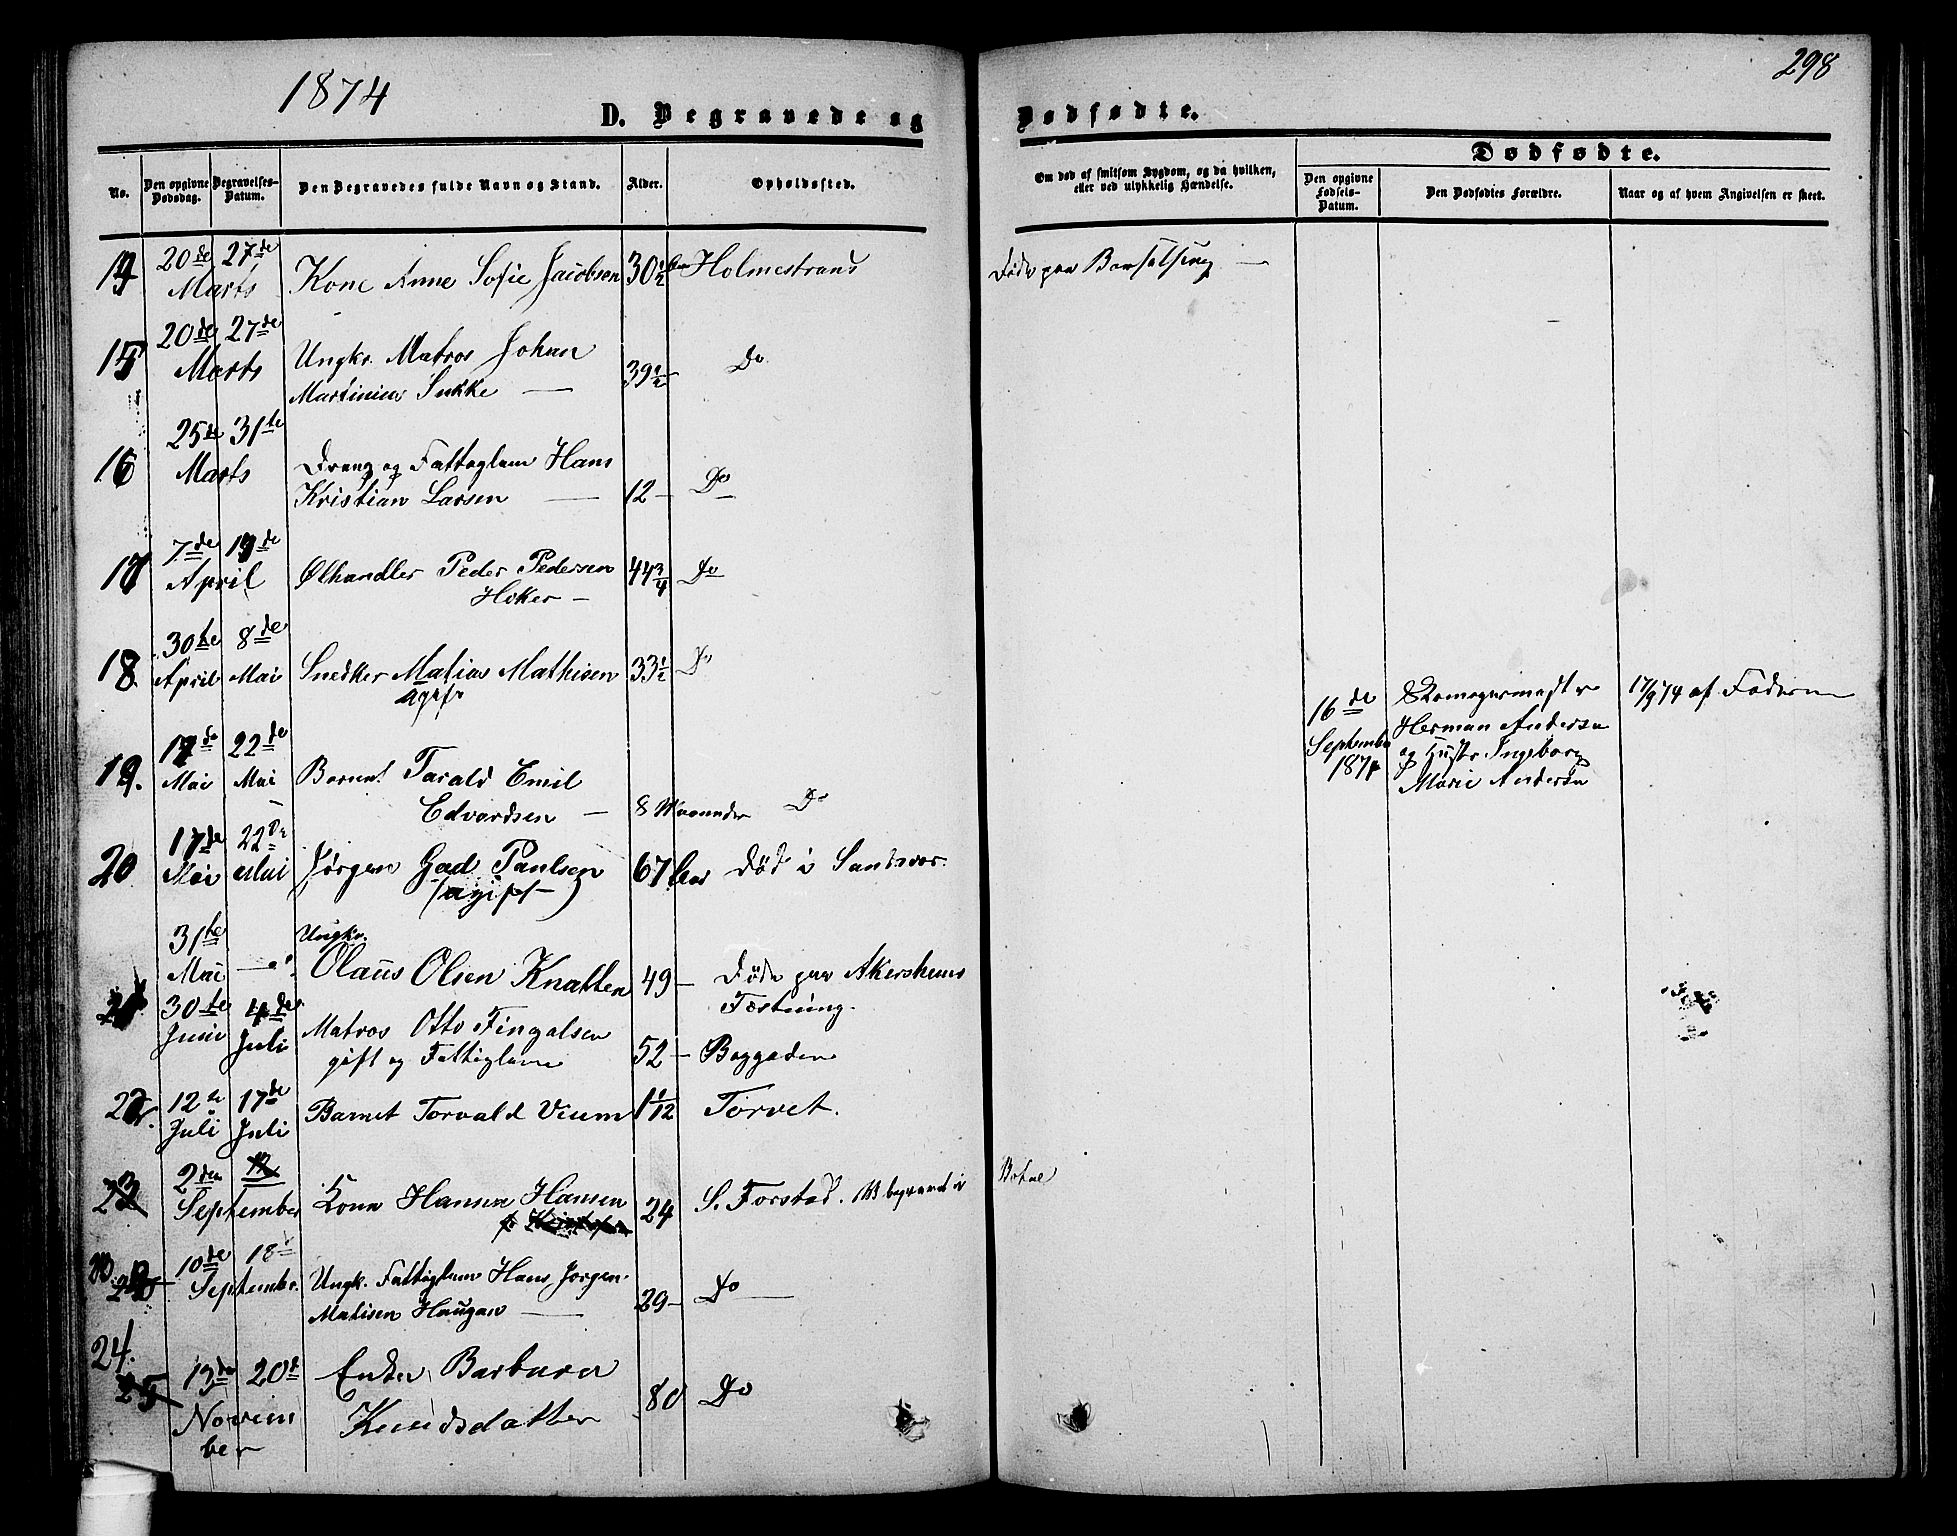 1874
298
D. Begravede og Dødfødte.
No.
Den opgivne Dødsdag.
Begravelses-Datum.
Den Begravedes fulde Navn og Stand.
Alder.
Opholdssted.
Om død af smitsom Sygdom, og da hvilken, eller ved ulykkelig Hændelse.
Dødfødte.
Den opgivne Fødsels-Datum.
Den Dødfødtes Forældre.
Naar og af hvem Angivelsen er skeet.
14 20de 27de
Marts Kone Anne Sofie Jacobsen 30½ Holmestrand Døde paa Barselseng —
20de 27de
15 Marts Ungkr. Matros Johan Do
Martinius Sukke — 39½ —
25de 31te
16 Marts Dreng og Fattiglem Hans
Kristian Larsen — 12 — Do
7de 19de
17 April Ølhandler Peder Pedersen 44¾ Do
Høker —
30te 8de
18. April Mai Snedker Matias Mathisen 33½ Do
17de 22de
19. Mai Mai Barnet Tarald Emil
Edvardsen — 8 Maaneder Do
17de 22de
20 Mai Mai Jørgen Gad Paulsen 67 Død i Sandsvær.
(ugift)
31te Ungkr.
Mai Olaus Olsen Knatten 49 — Døde paa Akershuus
Fæstning.
21 30te 4de
Juni Juli Matros Otto Fingalsen
gift og Fattiglem 52 — Baggaden
22. 12te 17de
Juli Juli Barnet Torvald Vium 1 1/12 Torvet.
23 2den
September Kone Hanna Hansen 24 S. Forstad. begravet i Botne
10de 18
September Ungk. Fattiglem Hans Jørgen
Matisen Haugan — 29 — Do —
24.
25 13de 20de Enken Barbara
Novem Knudsdatter 80 Do
ber
16de September 1874
Skomagermester
Herman Andersen
og Hustr. Ingeborg
Marie Andersen
17/9 74 af Faderen